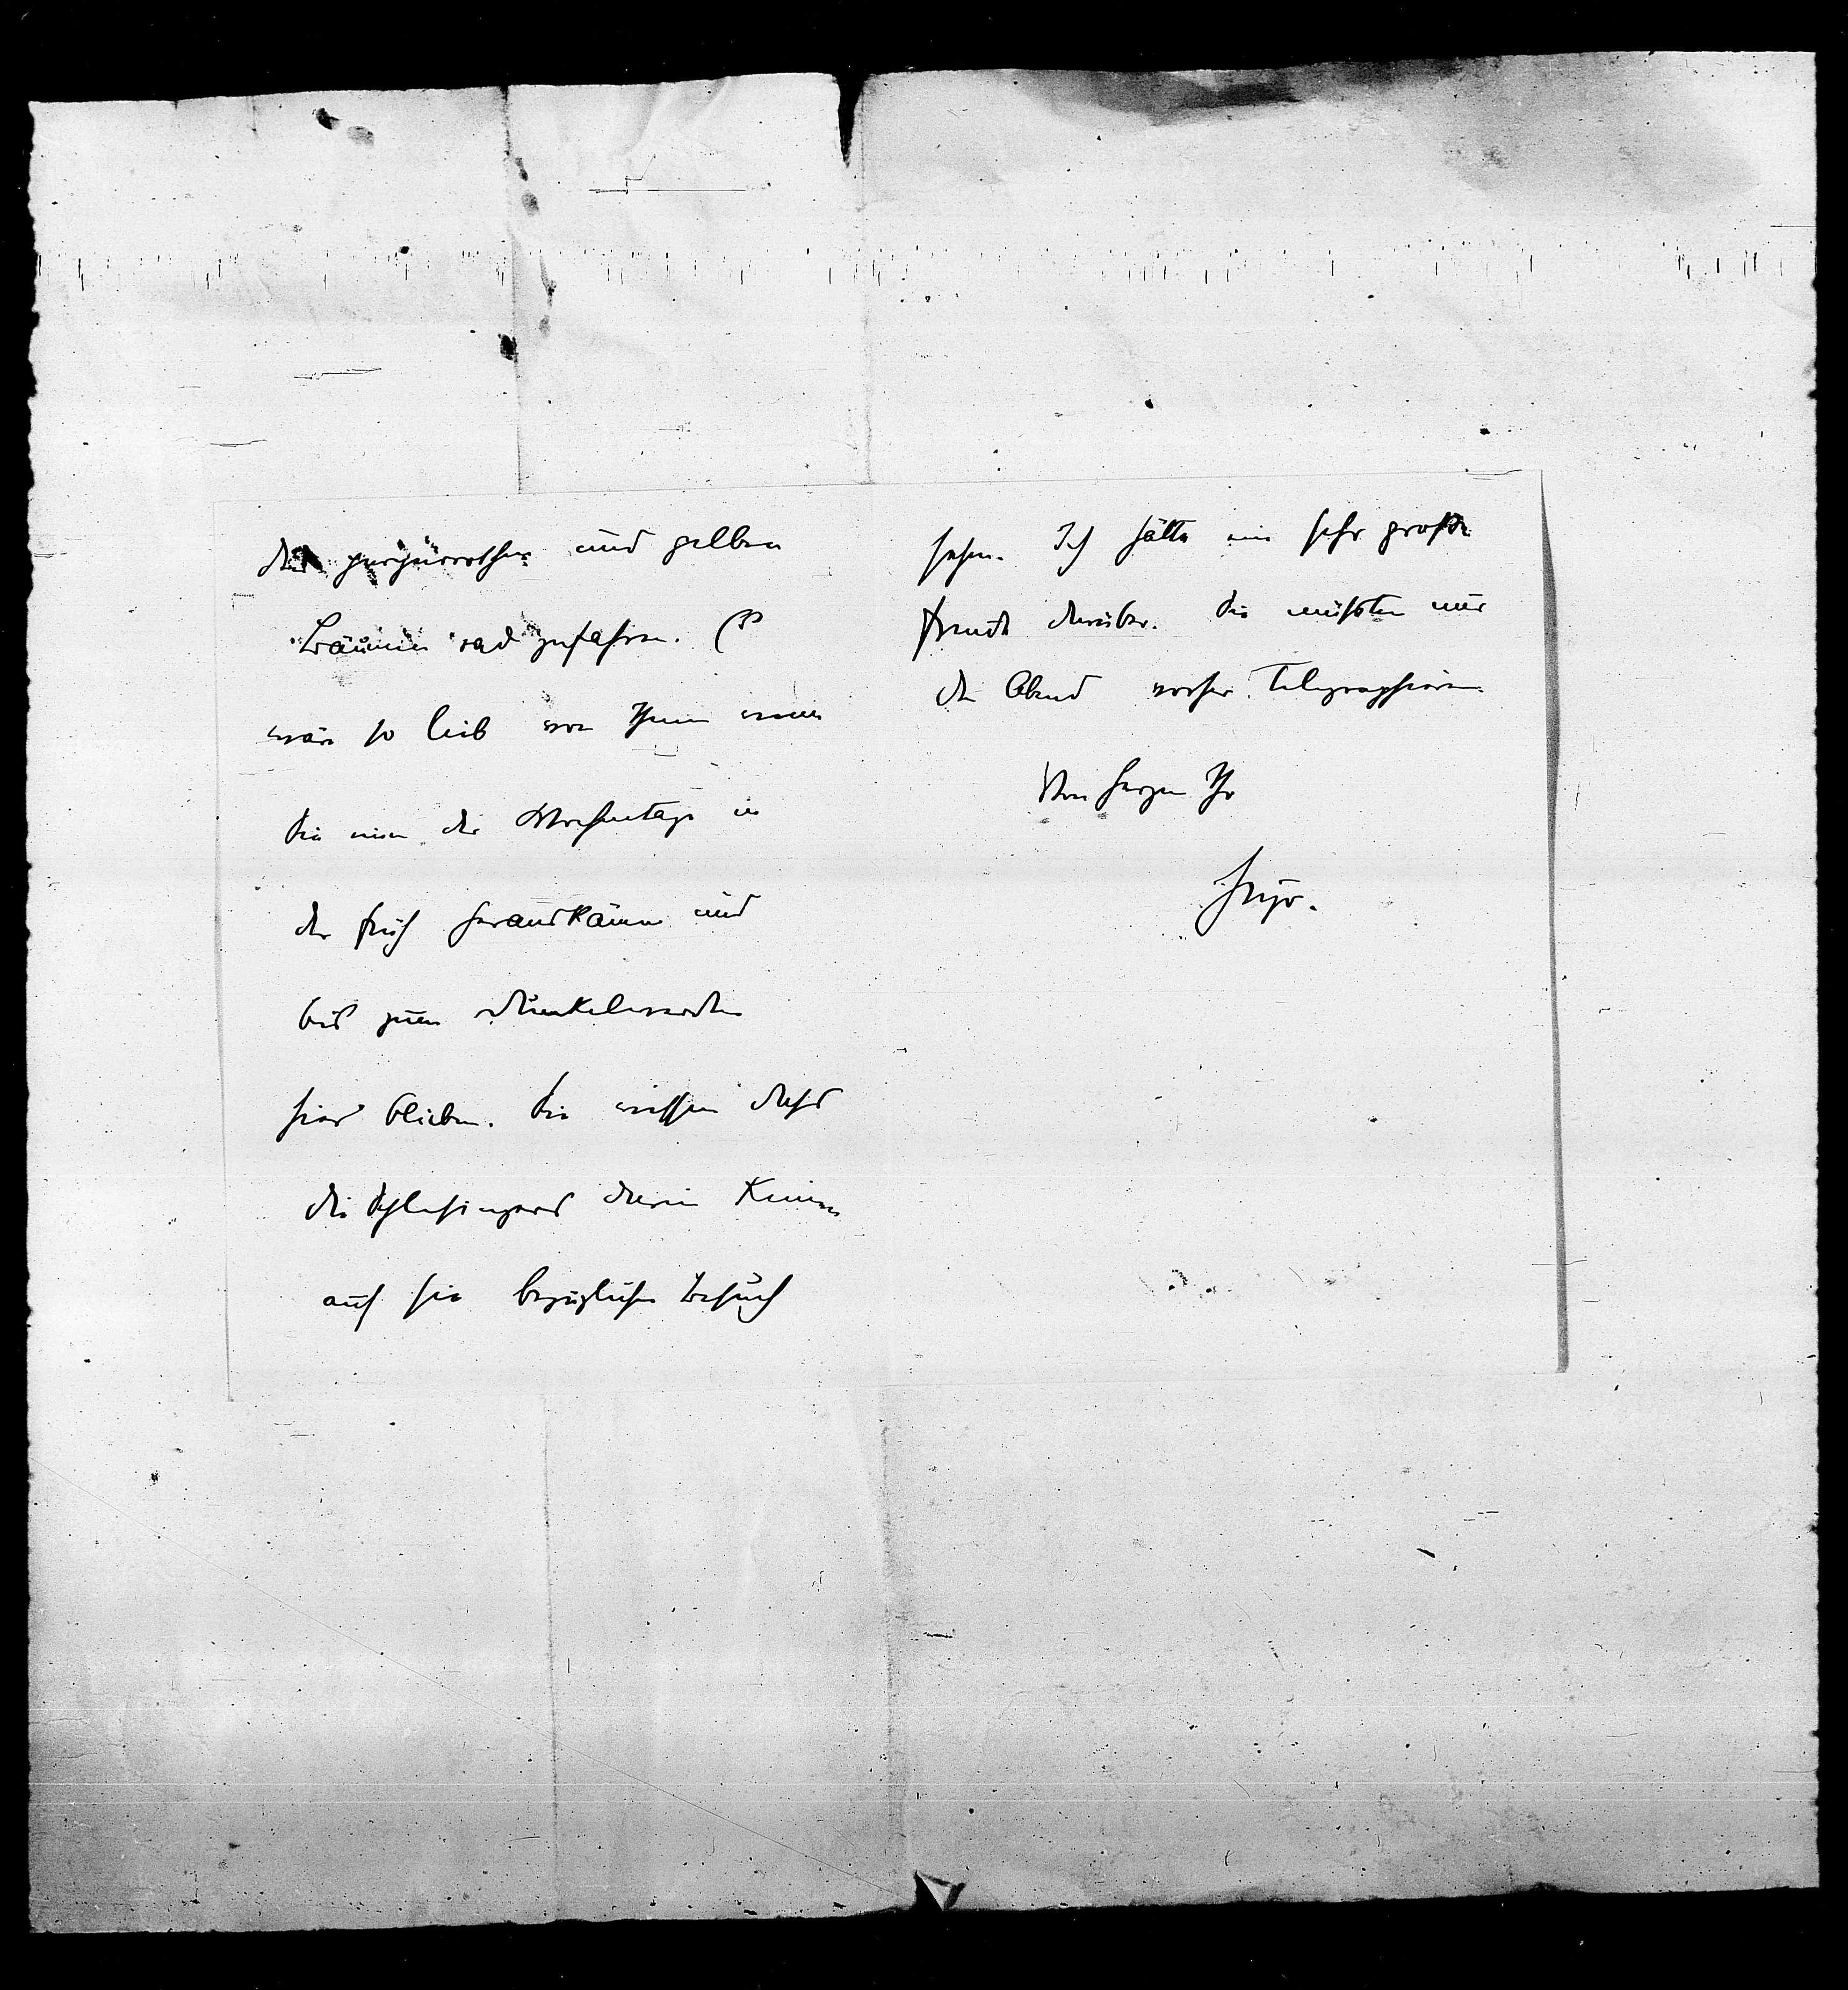 den purpurrothen und gelben
Bäumen rad zu fahren. Es
wäre so lieb von Ihnen wenn
Sie einen der Wochentage in
der früh herauskämen und
bis zum Dunkelwerden
hier blieben. Sie wissen dass
die Schlesingers darin keinen
auf sie bezüglichen Besuch
sehen. Ich hätte eine sehr große
Freude darüber. Sie müssten nur
den Abend vorher telegraphieren.
Von Herzen Ihr
Hugo.